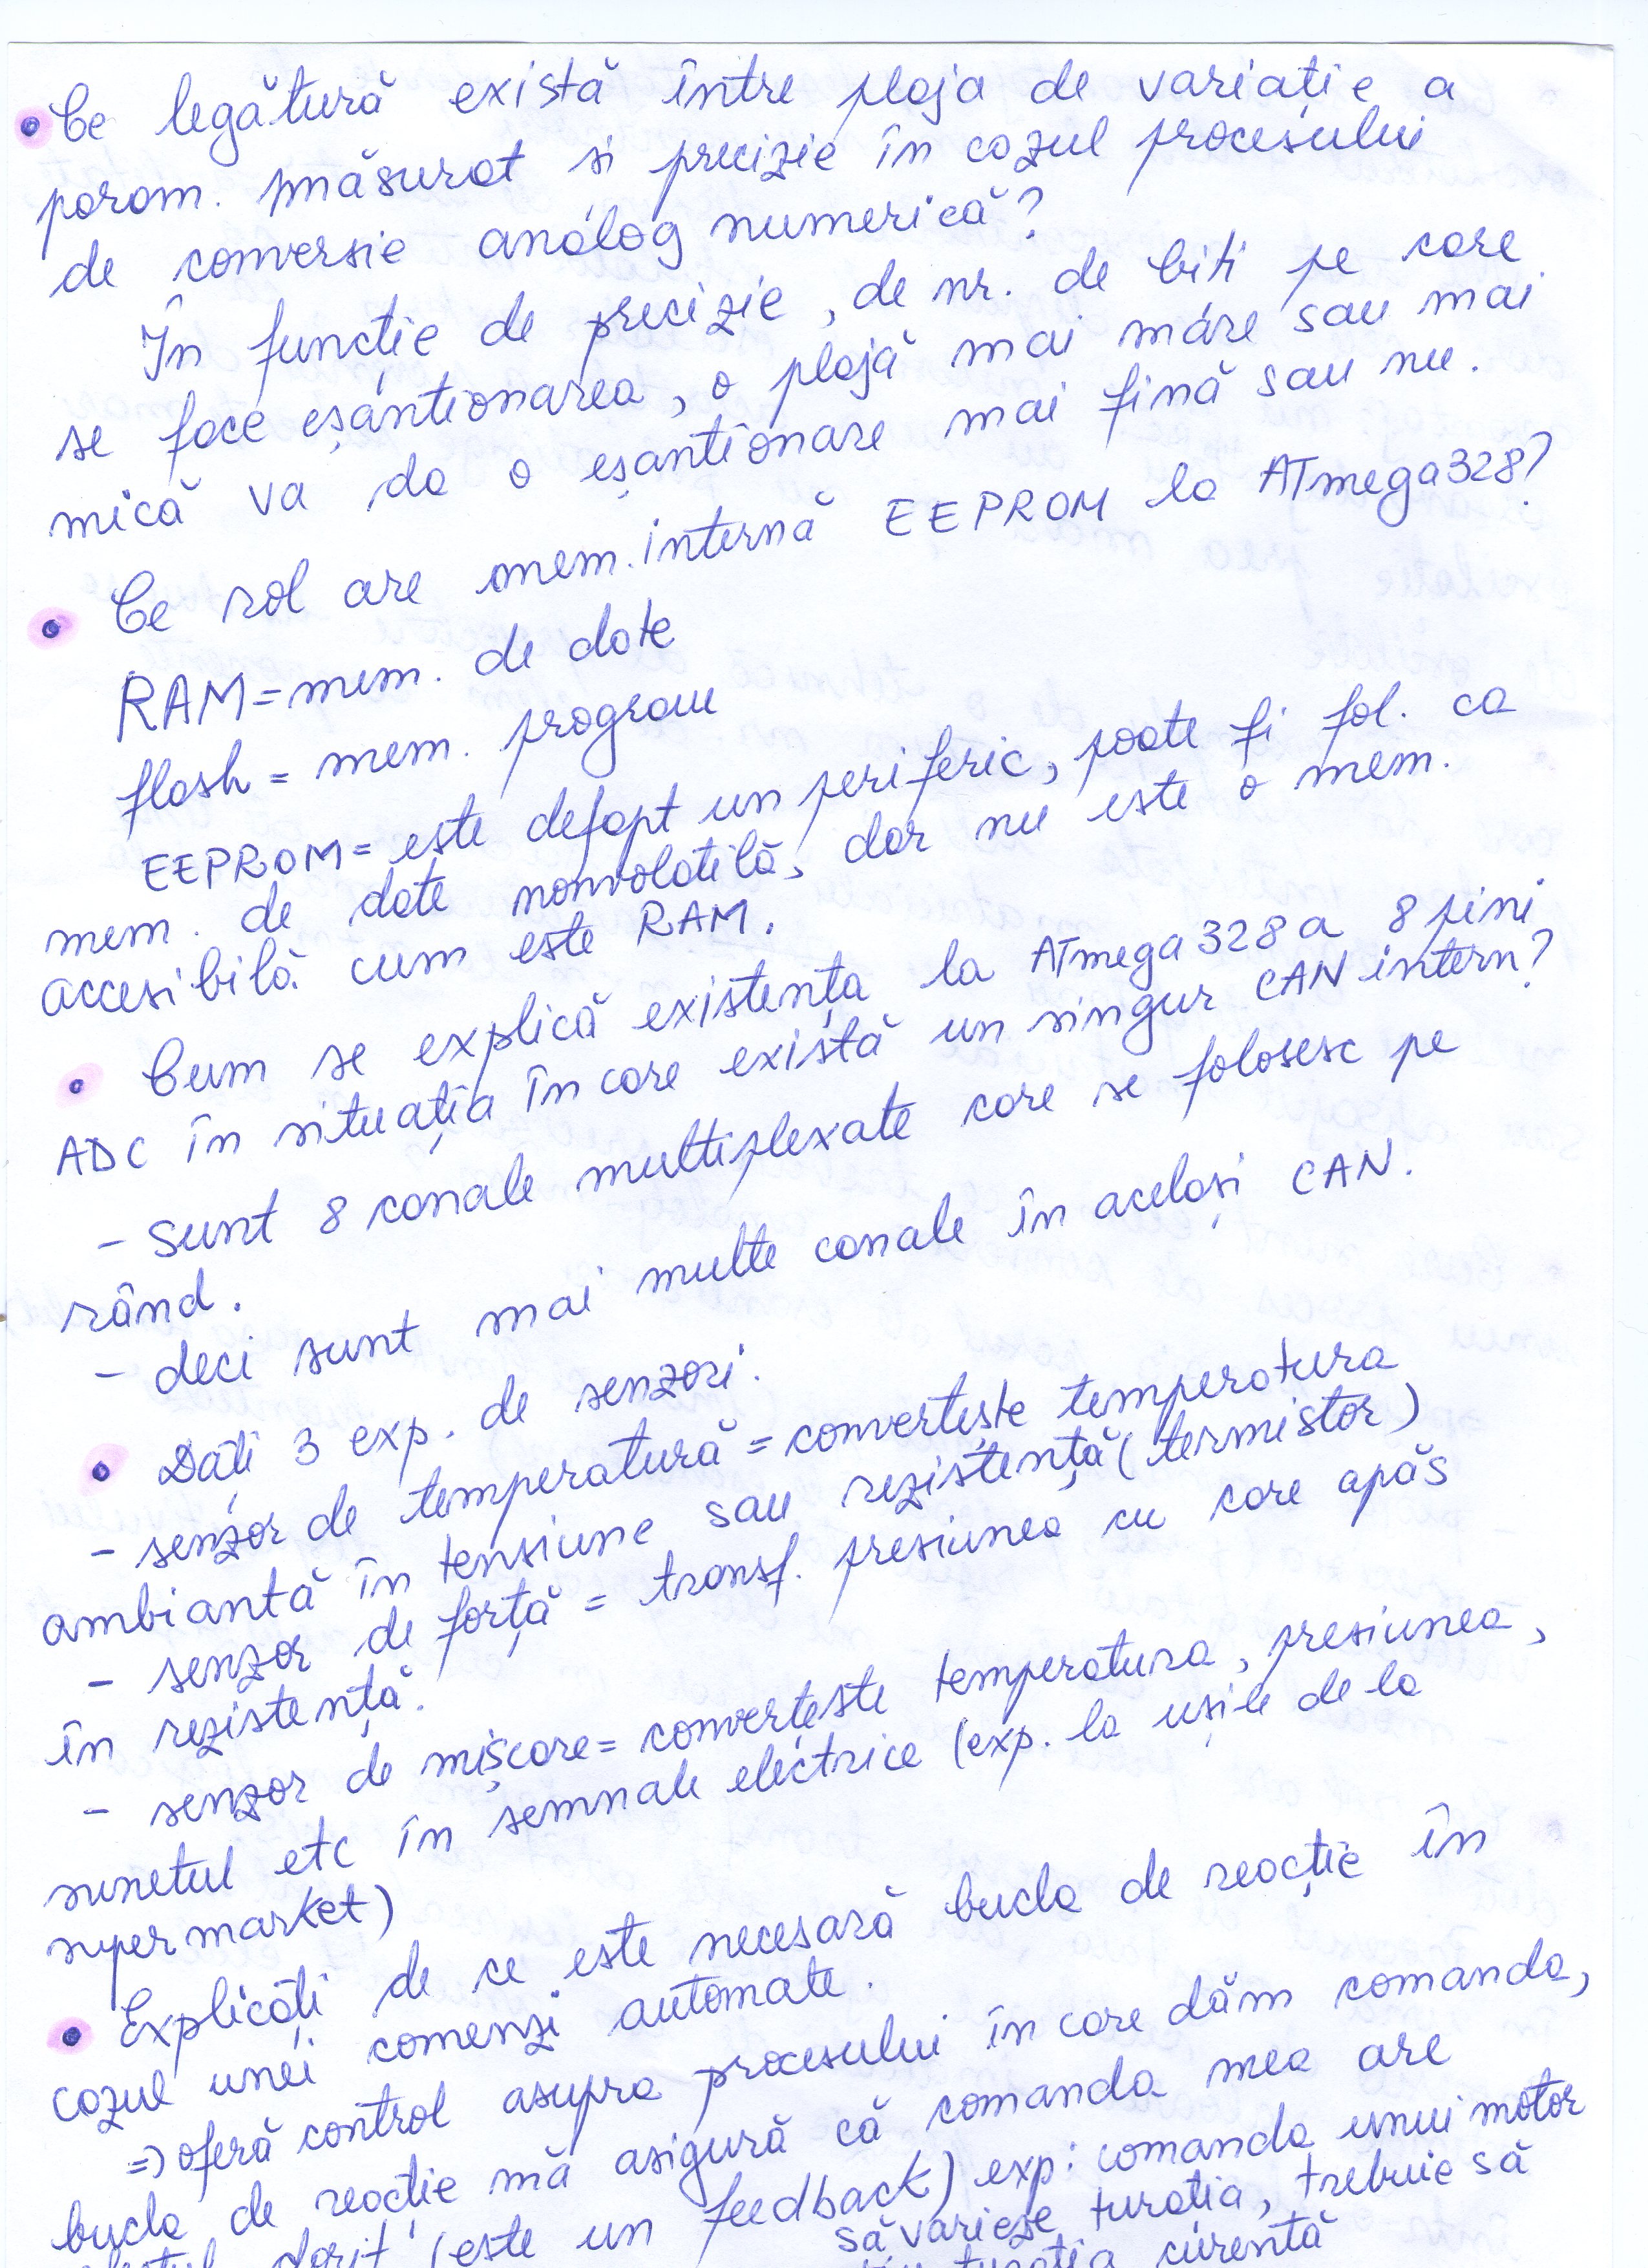 • Ce legătură există între plaja de variație a
param. măsurat și precizie în cazul procesului
de conversie analog numerică?
În funcție de precizie, de nr. de biți pe care
se face eșantionarea, o plajă mai mare sau mai
mică va da o eșantionare mai fină sau nu.
• Ce rol are mem. internă EEPROM la ATmega328?
RAM = mem. de date
flash = mem. program
EEPROM = este defapt un periferic, poate fi fol. ca
mem. de date nonvolatilă, dar nu este o mem.
accesibilă cum este RAM.
• Cum se explică existența la ATmega328 a 8 pini
ADC în situația în care există un singur CAN intern?
- Sunt 8 canale multiplexate care se folosesc pe
rând.
- deci sunt mai multe canale în același CAN.
• Dați 3 exp. de senzori.
- senzor de temperatură = convertește temperatura
ambiantă în tensiune sau rezistență (termistor)
- senzor de forță = transf. presiunea cu care apăs
în rezistență.
- senzor de mișcare = convertește temperatura, presiunea,
sunetul etc în semnale electrice (exp. la ușile de la
supermarket)
• Explicați de ce este necesară bucla de reacție în
cazul unei comenzi automate.
=> oferă control asupra procesului în care dăm comanda,
bucla de reacție mă asigură că comanda mea are
dorit (este un feedback) exp: comanda unui motor
să varieze turația, trebuie să
turația curentă